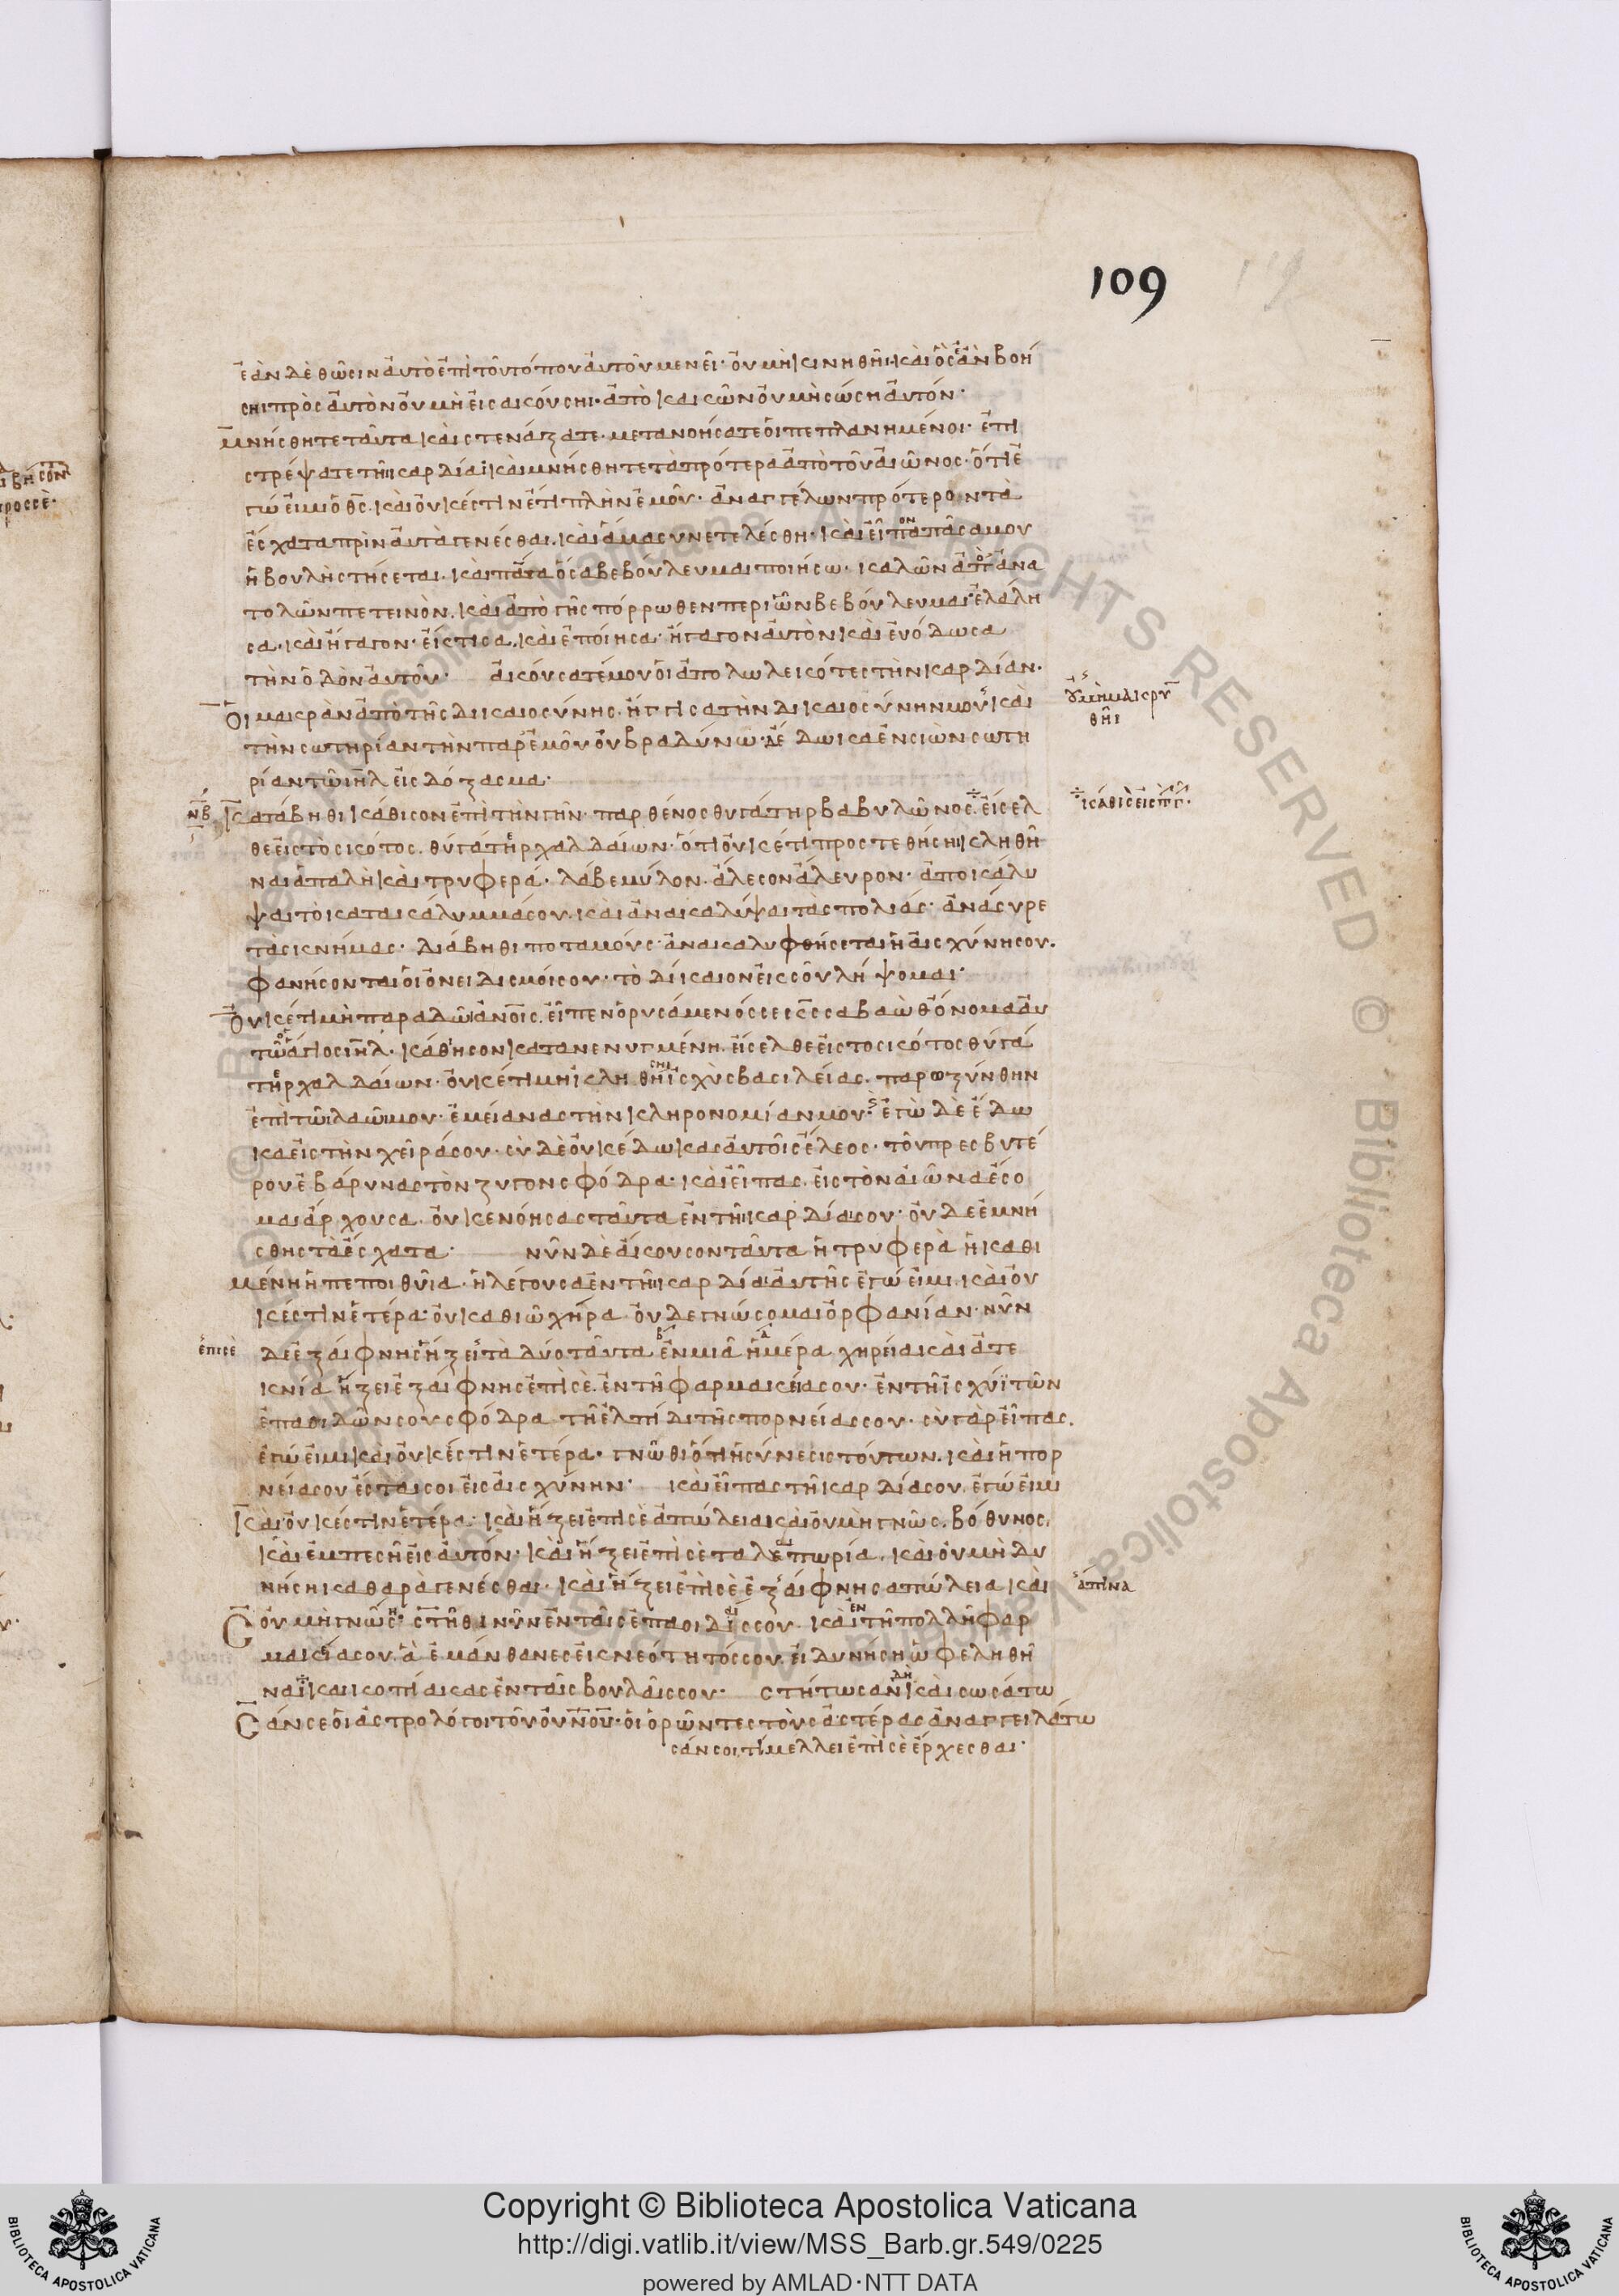 109
ἐὰν δὲ θῶσιν αὐτὸ ἐπὶ τοῦ τόπου αὐτοῦ μενεῖ· οὐ μὴ κινηθῆι· καὶ ὃς ἐὰν βοή
σηι πρὸς αὐτὸν οὐ μὴ εἰσακούσηι· ἀπὸ κακῶν οὐ μὴ σώση αὐτόν·
μνήσθητε ταῦτα καὶ στενάξατε· μετανοήσατε οἱ πεπλανημένοι· ἐπι
στρέψατε τῆι καρδίαι καὶ μνήσθητε τὰ πρότερα ἀπὸ τοῦ αἰῶνος· ὅτι ἐ
γώ εἰμι ὁ θς· καὶ οὐκ ἔστιν ἔτι πλὴν ἐμοῦ· ἀναγγέλων πρότερον τὰ
ἔσχατα πρὶν αὐτὰ γενέσθαι· καὶ ἅμα συνετελέσθη· καὶ εἶπα πᾶσα μου
ἡ βουλὴ στήσεται· καὶ πάντα ὅσα βεβούλευμαι ποιήσω· καλῶν ἀπ ἀνα
τολῶν πετεινὸν· καὶ ἀπὸ γῆς πόρρωθεν περὶ ὧν βεβούλευμαι ἐλάλη
σα· καὶ ἤγαγον· ἔκτισα· καὶ ἐποίησα· ἤγαγον αὐτὸν καὶ εὐόδωσα
τὴν ὁδὸν αὐτοῦ· ἀκούσατέ μου οἱ ἀπολωλεκότες τὴν καρδίαν·
Οἱ μακρὰν ἀπὸ τῆς δικαιοσύνης· ἤγγισα τὴν δικαιοσύνην μου καὶ
οὐ μὴ μακρυν
θῆι
τὴν σωτηρίαν τὴν παρ ἐμοῦ οὐ βραδύνω· δέδωκα ἐν σιὼν σωτη
ρίαν τῶ ιηλ εἰς δόξασμα·
νβ Κατάβηθι κάθισον ἐπὶ τὴν γῆν· παρθένος θυγάτηρ βαβυλῶνος· εἴσελ
θε εἰς τὸ σκότος· θυγάτηρ χαλδαίων· ὅτι οὐκέτι προστεθήσηι κληθῆ
ναι ἁπαλὴ καὶ τρυφερά· λάβε μύλον· ἄλεσον ἄλευρον· ἀποκάλυ
ψαι τὸ κατακάλυμμά σου· καὶ ἀνακαλύψαι τὰς πολιάς· ἀνάσυρε
τὰς κνήμας· διάβηθι ποταμούς· ἀνακαλυφθήσεται ἡ αἰσχύνη σου·
φανήσονται οἱ ὀνειδισμοί σου· τὸ δίκαιον εἰς σοῦ λήψομαι·
Οὐκέτι μὴ παραδῶ ἀνοις· εἶπεν ὁ ρυσάμενός σε κς σαβαὼθ ὄνομα αὐ
τῶ ἅγιος ιηλ· κάθησον κατανενυγμένη· εἴσελθε εἰς το σκότος θυγά
τηρ χαλδαίων· οὐκέτι μὴ κληθῆ ἰσχὺς βασιλείας· παρωξύνθην
ἐπὶ τῶι λαῶι μου· ἐμείανας τὴν κληρονομίαν μου· ἐγὼ δὲ ἔδω
κα εἰς τὴν χεῖρά σου· σὺ δὲ οὐκ ἔδωκας αὐτοῖς ἔλεος· τοῦ πρεσβυτέ
ρου ἐβάρυνας τὸν ζυγον σφόδρα· καὶ εἶπας· εἰς τὸν αἰῶνα ἔσο
μαι ἄρχουσα· οὐκ ἐνόησας ταῦτα ἐν τῆι καρδία σου· οὐδὲ ἐμνή
σθης τὰ ἔσχατα· νῦν δὲ ἄκουσον ταῦτα ἡ τρυφερὰ ἡ καθι
μένη ἡ πεποιθυῖα· ἡ λέγουσα ἐν τῆι καρδίαι αὐτῆς ἐγώ εἰμι· καὶ οὐ
κ ἔστιν ἑτέρα· οὐ καθιῶ χήρα οὐδὲ γνώσομαι ὀρφανίαν· νῦν
ἐπι σὲ
δὲ ἐξαίφνης ἥξει τὰ δύο ταῦτα ἐν μιᾶ ἡμέρα χηρεία καὶ ἀτε
κνία ἥξει ἐξαίφνης ἐπὶ σὲ· ἐν τῆ φαρμακεία σου· ἐν τῆ ἰσχύϊ τῶν
ἐπαοιδῶν σου σφόδρα τῆ ἐλπίδι τῆς πορνείας σου· σὺ γὰρ εἶπας·
ἐγώ εἰμι καὶ οὐκ ἔστιν ἑτέρα· γνῶθι ὅτι ἡ σύνεσις τούτων· καὶ ἡ πορ
νεία σου ἔσται σοι εἰς αἰσχύνην· καὶ εἶπας τῆ καρδία σου· ἐγώ εἰμι
Καὶ οὐκ ἔστιν ἑτέρα· καὶ ἥξει ἐπὶ σὲ ἀπώλεια καὶ οὐ μὴ γνῶς· βόθυνος·
καὶ ἐμπεσῆ εἰς αὐτόν· καὶ ἥξει ἐπὶ σὲ ταλεπωρία· καὶ οὐ μὴ δυ
νήση καθαρὰ γενέσθαι· καὶ ἥξει ἐπὶ σὲ ἐξαίφνης απώλεια καὶ
οὐ μὴ γνῶς· στῆθι νῦν ἐν ταῖς ἐπαοιδαῖς σου· καὶ τῆ πολλῆ φαρ
μακεία σου· ἃ ἐμάνθανες εἰς νεότητός σου· εἰ δυνήση ὠφεληθῆ
ναι κεκοπίακας ἐν ταῖς βουλαῖς σου· στήτωσαν καὶ σωσάτω
Σάν σε οἱ ἀστρολόγοι τοῦ οὐνοῦ· οἱ ὁρῶντες τοὺς ἀστέρας ἀναγγειλάτω
σάν σοι· τί μέλλει ἐπὶ σὲ ἔρχεσθαι·
Copyright © Biblioteca Apostolica Vaticana
http://digi.vatlib.it/view/MSS_Barb.gr.549/0225
powered by AMLAD·NTT DATA